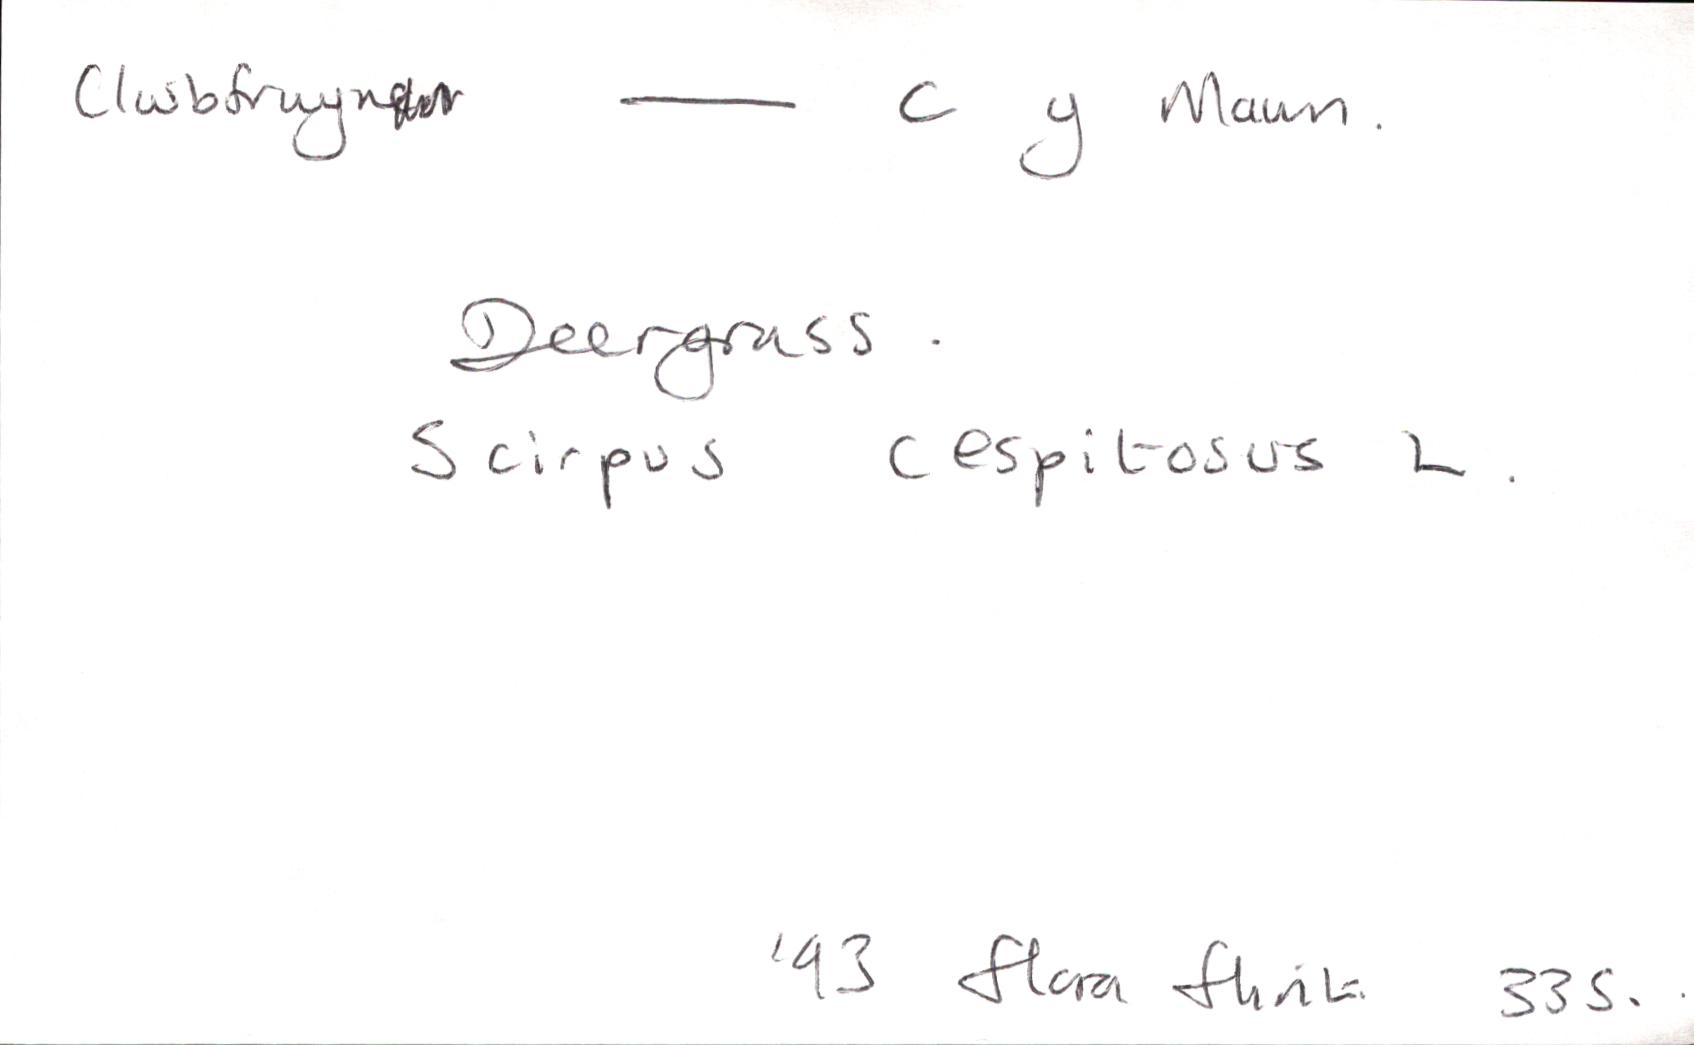 Clwbfrwyn — C y Mawn.
Deergrass.
Scirpus cespitosus L.
'93 flora flint 335.